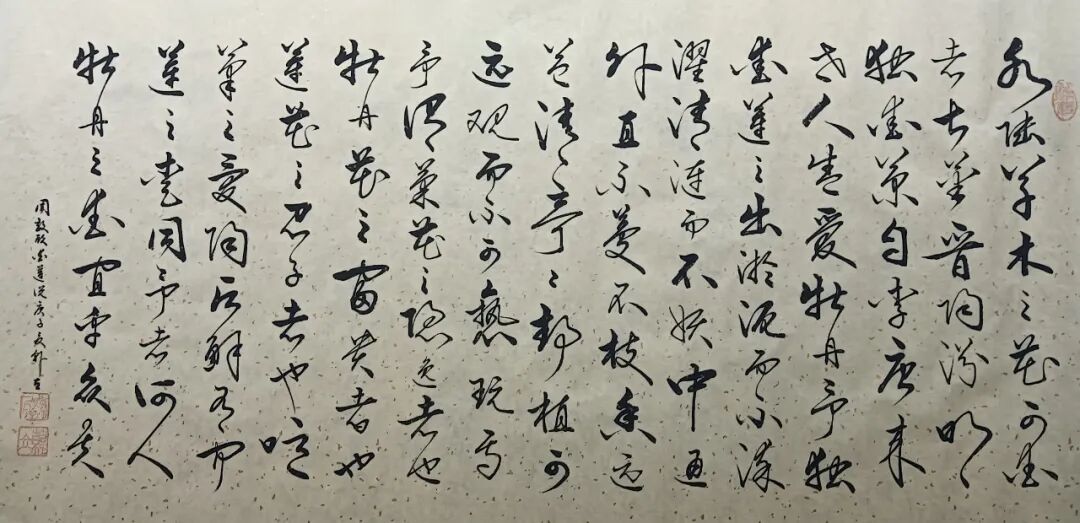 水陆草木之花可爱
者甚蕃晋陶渊明
独爱菊自李唐来
世人甚爱牡丹予独
爱莲之出淤泥而不染
濯清涟而不妖中通
外直不蔓不枝香远
益清亭々静植可
远观而不可亵玩焉
予谓菊花之隐逸者也
牡丹花之富贵者也
莲花之君子者也噫
菊之爱陶后鲜有闻
莲之爱同予者何人
牡丹之爱宜乎众矣
周敦颐爱莲说庚子夏